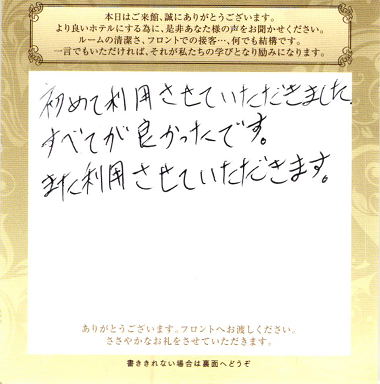 本日はご来館、誠にありがとうございます。
より良いホテルにする為に、是非あなた様の声をお聞かせください。
ルームの清潔さ、フロントでの接客…、何でも結構です。
一言でもいただければ、それが私たちの学びとなり励みになります。
初めて利用させていただきました。
すべてが良かったです。
また利用させていただきます。
ありがとうございます。フロントへお渡しください。
ささやかなお礼をさせていただきます。
書ききれない場合は裏面へどうぞ